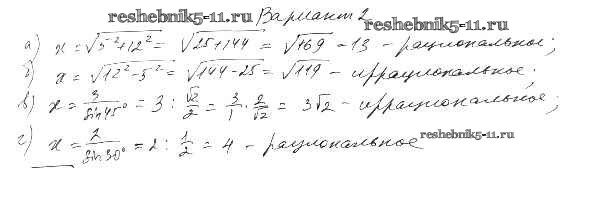 reshebnik5-11.ru Вариант 2 reshebnik5-11.ru
а) x = √5²+12² = √25+144 = √169 - 13 - рациональное;
б) x = √12²-5² = √144-25 = √119 - иррациональное;
в) x = 3/sin45° = 3 : √2/2 = 3/1 · 2/√2 = 3√2 - иррациональное;
г) x = 2/sin30° = 2 : 1/2 = 4 - рациональное reshebnik5-11.ru